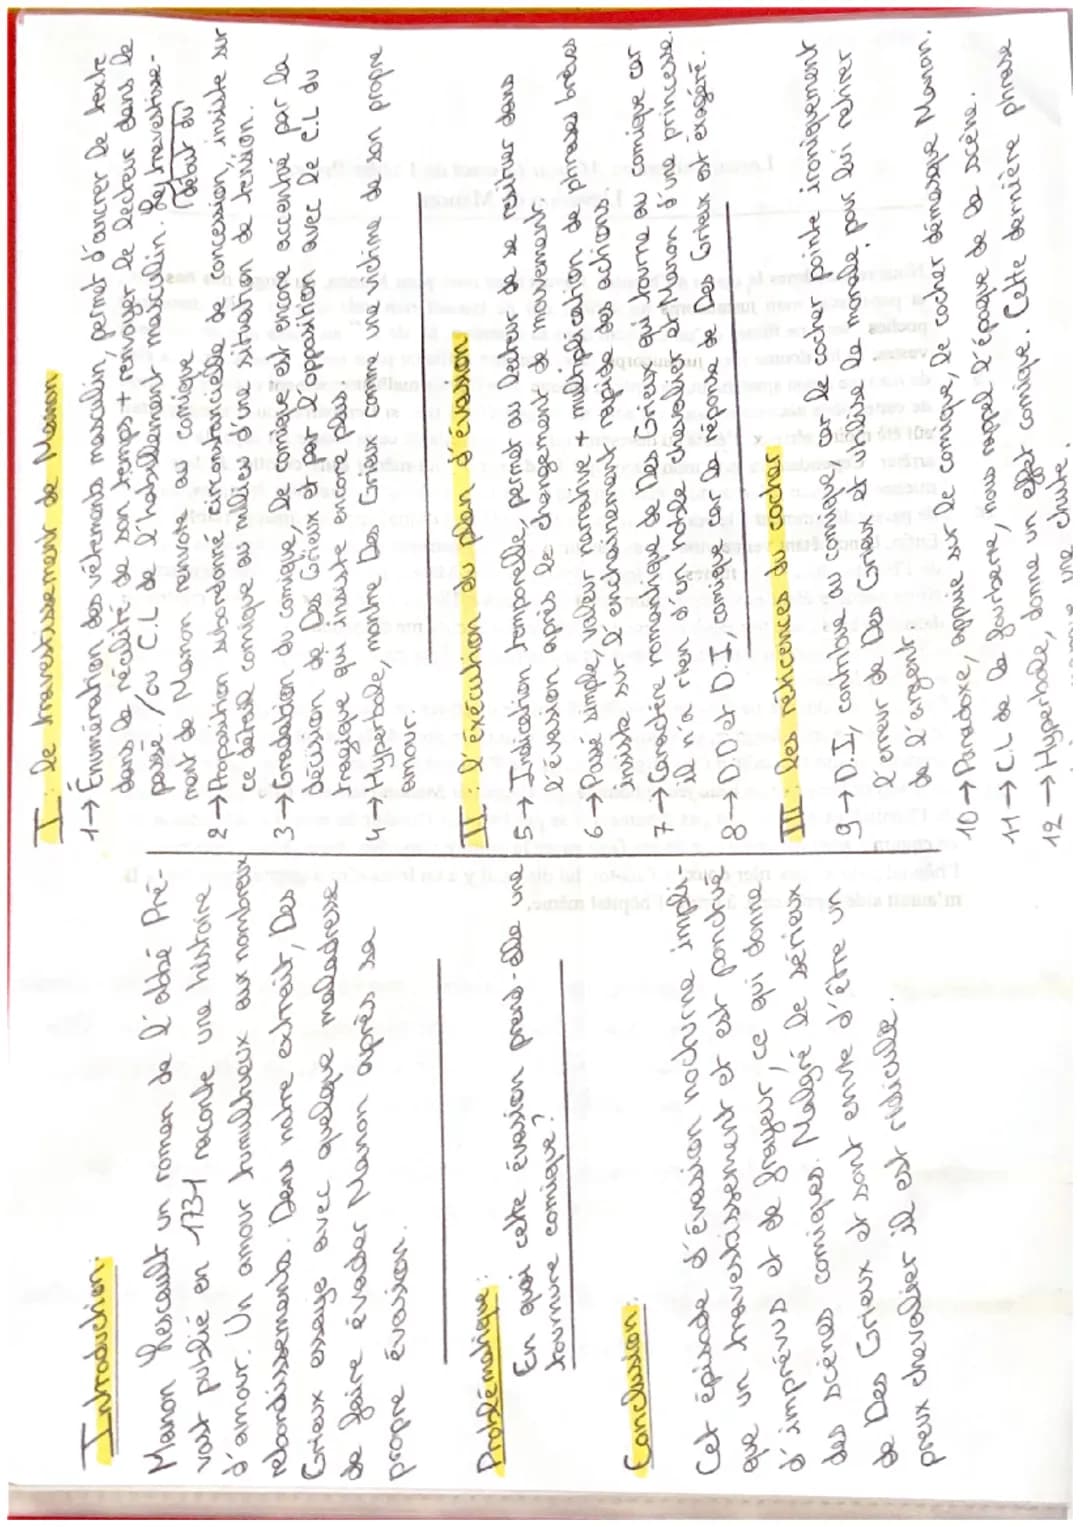 Introduction:
Manon Lescault un roman de l'abbé Pré-
vost publié en 1731 raconte une histoire
d'amour. Un amour tumultueux aux nombreux
rebondissements. Dans notre extrait, Des
Grieux essaye avec quelque maladresse
de faire évader Manon après sa
propre évasion.
Problématique:
En quoi cette évasion prend-elle une
tournure comique?
Conclusion:
Cet épisode d'évasion nocturne impli-
que un travestissement et est ponctué
d'imprévus et de frayeur, ce qui donne
des scènes comiques. Malgré le sérieux
de Des Grieux et sont envie d'être un
preux chevalier il est ridicule.
I: Le travestissement de Manon
1→ Énumération des vêtements masculin, permet d'ancrer le texte
dans la réalité de son temps + renvoyer le lecteur dans le
passé. / ou C.L de l'habillement masculin. Le travestisse-
ment de Manon renvoie au comique. début du
2→ Proposition subordonné circonstancielle de concession, insiste sur
ce détail comique au milieu d'une situation de tension.
3→ Gradation du comique, le comique est encore accentué par la
décision de Des Grieux et par l'apparition avec le C.L du
tragique qui insiste encore plus.
4→ Hyperbole, montre Des Grieux comme une victime de son propre
amour.
II: L'exécution du plan d'évasion
5→ Indication temporelle, permet au lecteur de se resituer dans
l'évasion après le changement de mouvement.
6→ Passé simple, valeur narrative + multiplication de phrases brèves
insiste sur l'enchaînement rapide des actions.
7→ Caractère romanesque de Des Grieux qui tourne au comique car
il n'a rien d'un noble chevalier et Manon d'une princesse.
8→ DD et D.I, comique car la réponse de Des Grieux est exagéré.
III: Les réticences du cocher
9→ D.I contribue au comique car le cocher pointe ironiquement
l'erreur de Des Grieux et utilise la menace pour lui retirer
de l'argent
10→ Paradoxe, appuie sur le comique, le cocher démasque Manon.
11→ C.L de l'aventure, nous rappel l'époque de la scène.
12→ Hyperbole, donne un effet comique. Cette dernière phrase
marque une chute.